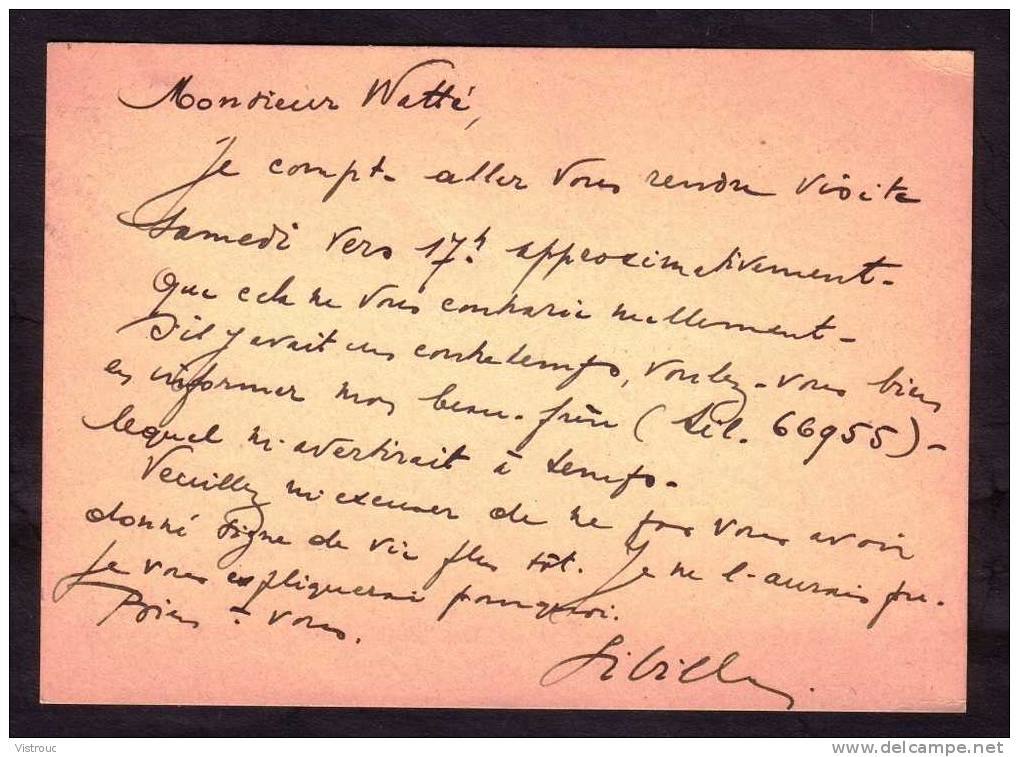 Monsieur Watté,
Je compte aller vous rendre visite
samedi vers 17h. approximativement.
Que cela ne vous contrarie nullement.
S'il y avait un contretemps, voulez-vous bien
en informer mon beau-frère (tél. 66955) -
lequel m'avertirait à temps.
Veuillez m'excuser de ne pas vous avoir
donné signe de vie plus tôt. Je ne l'aurais pu.
Je vous expliquerai pourquoi.
Bien à vous.
Vistrouc
www.delcampe.net